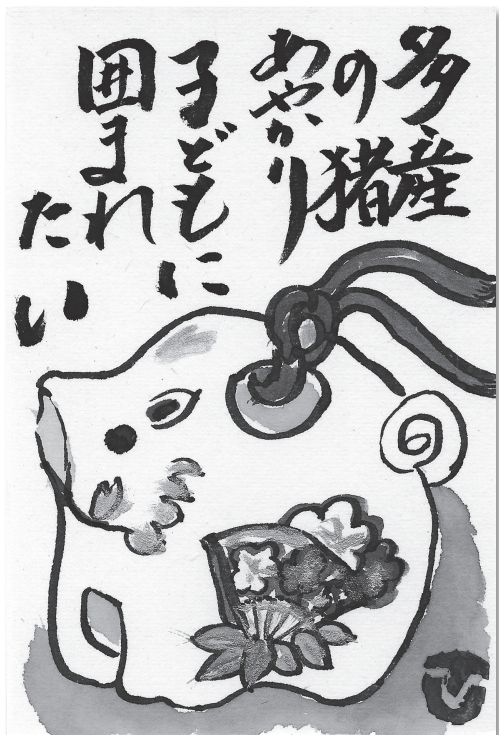 多産
の猪
あやかり
子どもに
囲まれ
たい